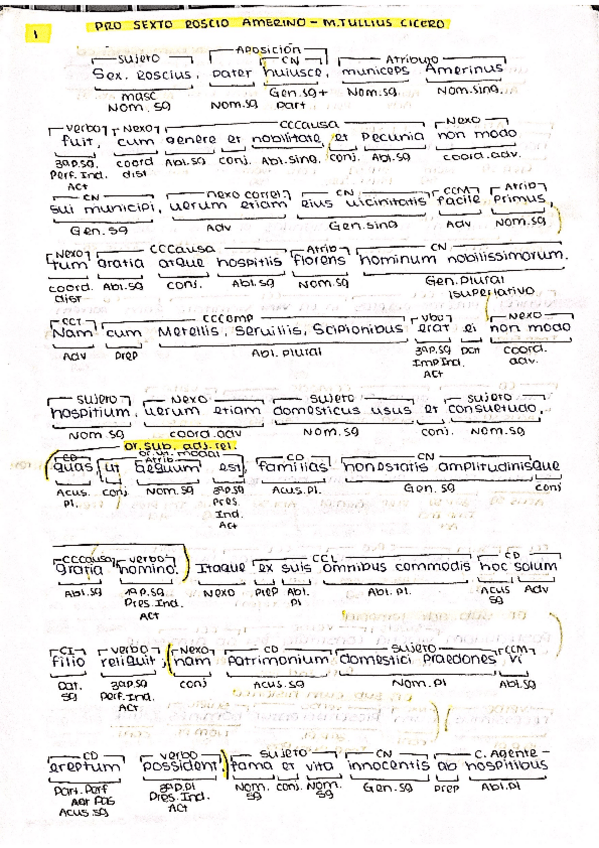 1 PRO SEXTO ROSCIO AMERINO - M.TULLIUS CICERO
sujeto Aposición CN Atributo
Sex. Roscius, pater huiusce, municeps Amerinus
masc Nom.sg Nom.sg Gen.sg+ part Nom.sg Nom.sing.
verbo Nexo CCCausa Nexo
fuit, cum genere et nobilitate, et Pecunia non modo
3ªp.sg. Perf.Ind. ACT coord dist Abl.sg conj. Abl.sing. conj. Abl.sg coord.adv.
CN nexo correl. CN CCM Atrib
sui municipi, uerum etiam eius uicinitatis facile primus,
Gen.sg Adv Gen.sing Adv Nom.sg
Nexo CCCausa Atrib CN
tum gratia atque hospitiis florens hominum nobilissimorum.
coord. dist Abl.sg conj. Abl.sg Nom.sg Gen.plural
superlativo
CCT CCComp vbo Nexo
Nam cum Metellis, Seruiliis, Scipionibus erat ei non modo
Adv prep Abl.plural 3ªp.sg Imp Ind. ACT Dat coord. adv.
sujeto Nexo sujeto sujeto
hospitium, uerum etiam domesticus usus et consuetudo,
Nom.sg coord.adv Nom.sg conj. Nom.sg
or.sub. adj.rel.
or. modal
CD Atrib. CD CN
quas, ut aequum est, familias honestatis amplitudinisque
Acus. pl. conj Nom.sg 3ªp.sg Pres. Ind. Act Acus.pl. Gen.sg conj
CCCausa verbo CCL CD
gratia nomino. Itaque ex suis omnibus commodis hoc solum
Abl.sg 1ªp.sg Pres.Ind. ACT Nexo Prep Abl. Pl Abl.pl. Acus sg Adv
CI verbo Nexo CD sujeto CCM
filio reliquit, nam patrimonium domestici praedones vi
Dat. sg 3ªp.sg Perf.Ind. ACT conj Acus.sg Nom.pl Abl.sg
CD verbo sujeto CN C. Agente -
ereptum possident, fama et vita innocentis ab hospitibus
Part. Perf Pas Acus.sg 3ªp.pl Pres.Ind. Act Nom. sg conj. Nom. sg Gen.sg prep Abl.pl